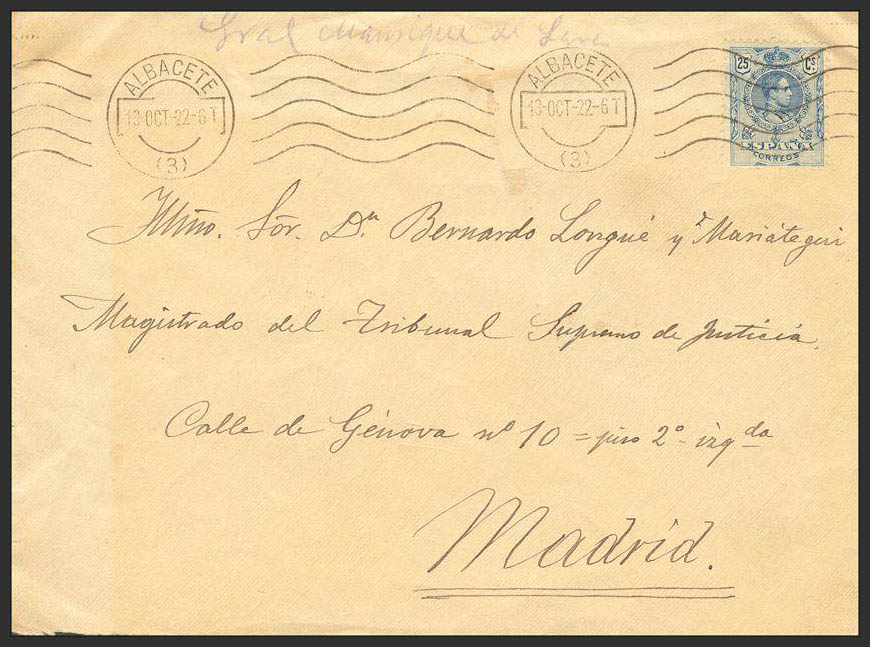 Gral Manrique de Lara
ALBACETE
13·OCT·22-6T
(3)
ALBACETE
13·OCT·22-6T
(3)
25 Cs
ESPAÑA
CORREOS
Illmo. Sór. Dn. Bernardo Longué y Mariátegui
Magistrado del Tribunal Supremo de Justicia.
Calle de Génova nº 10 = piso 2º izqda
Madrid.